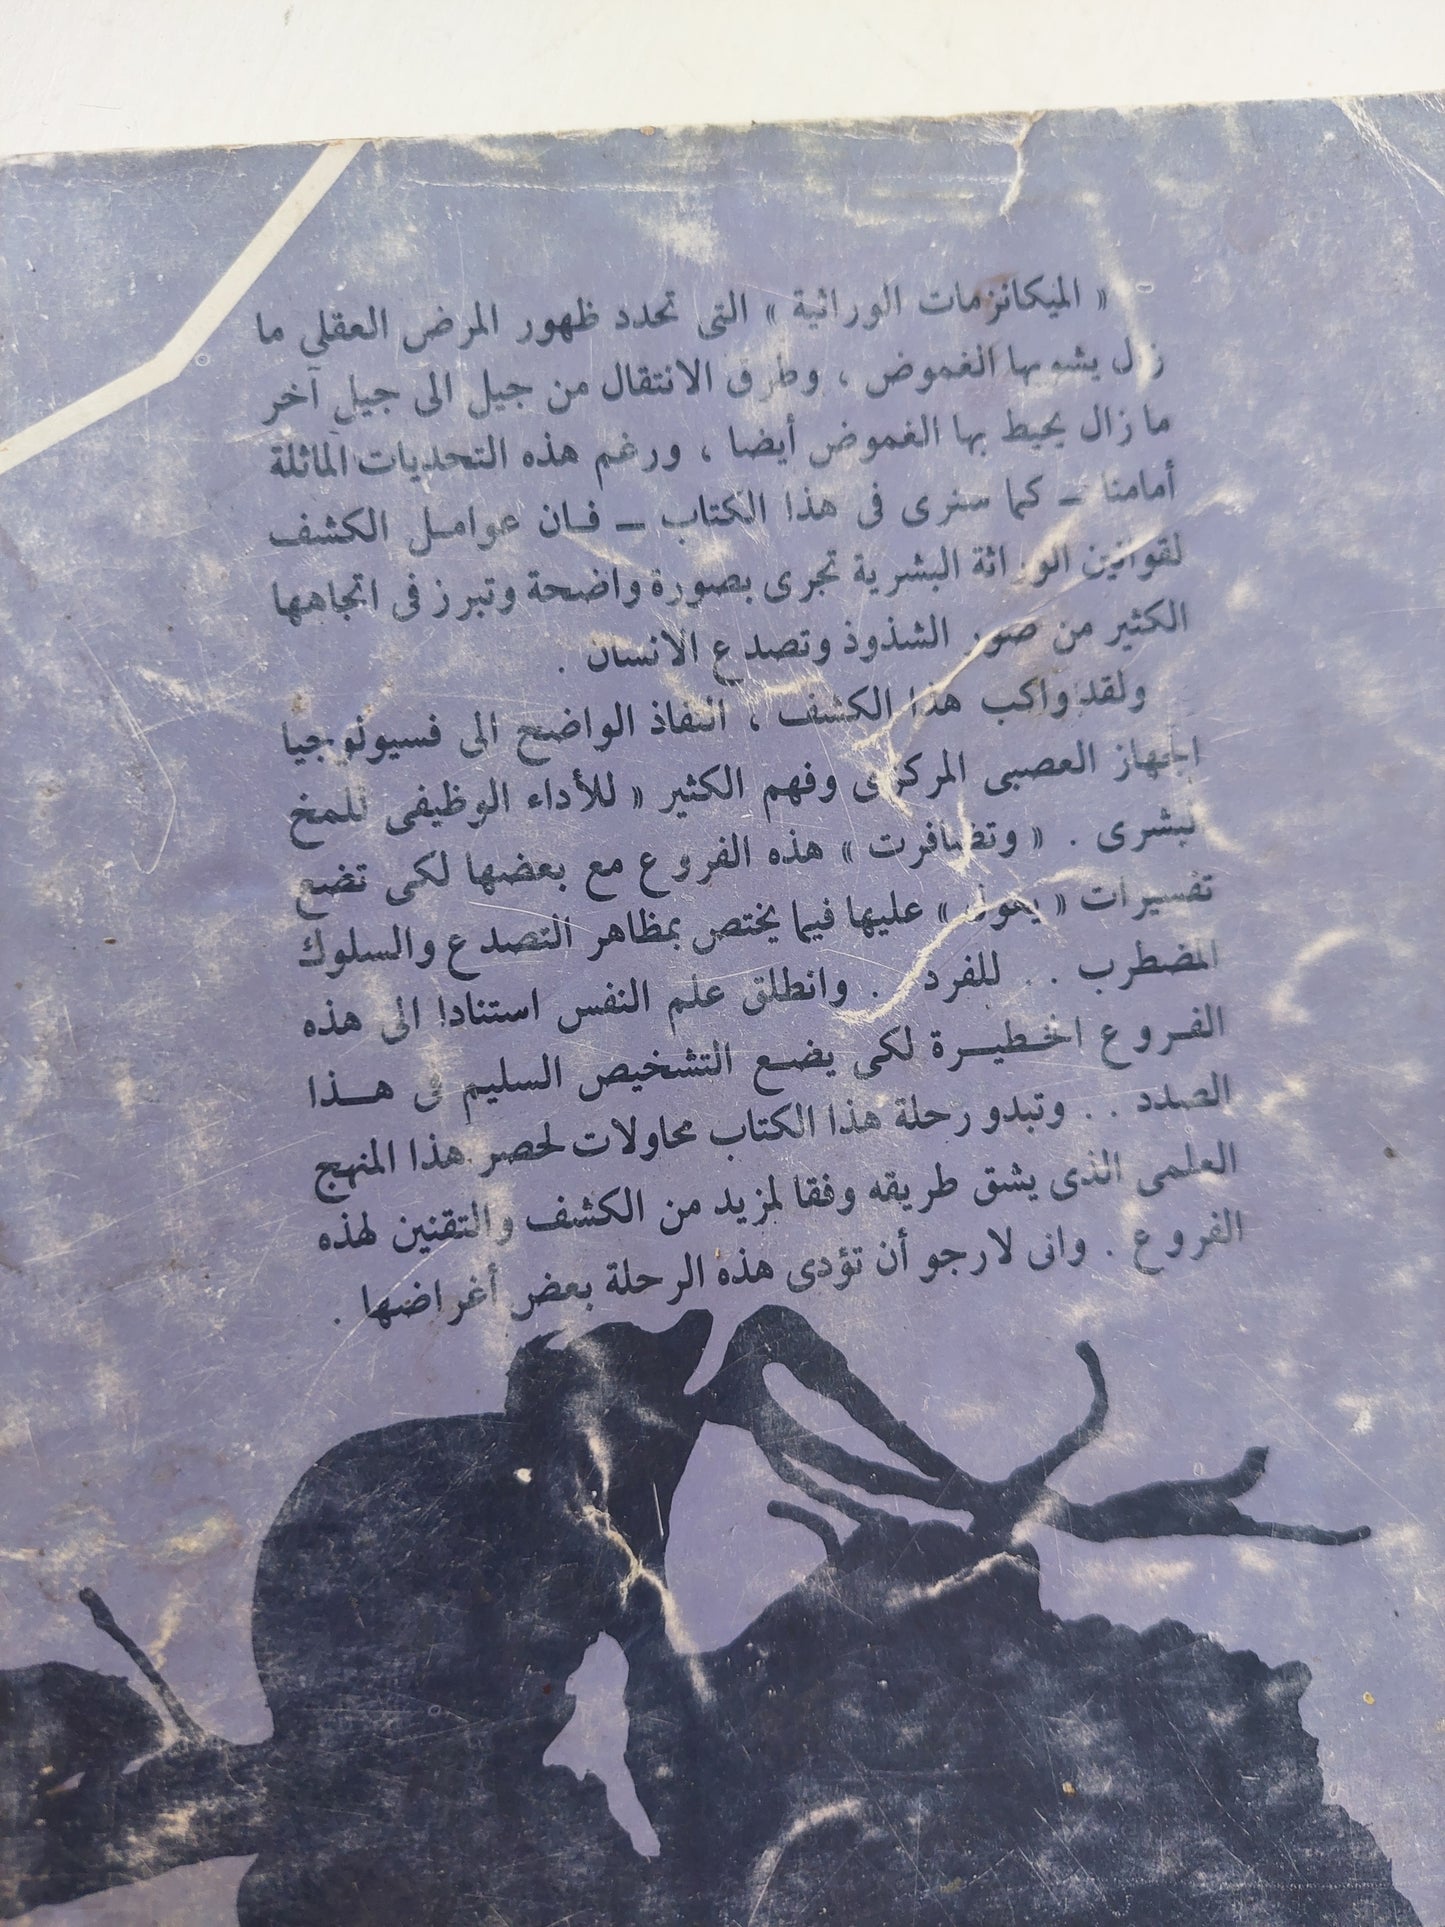 « الميكانزمات الوراثية » التى تحدد ظهور المرض العقلى ما
زال يشوبها الغموض ، وطرق الانتقال من جيل الى جيل آخر
ما زال يحيط بها الغموض أيضا ، ورغم هذه التحديات الماثلة
أمامنا ــ كما سنرى فى هذا الكتاب ــ فان عوامل الكشف
لقوانين الوراثة البشرية تجرى بصورة واضحة وتبرز فى اتجاهها
الكثير من صور الشذوذ وتصدع الانسان .
ولقد واكب هذا الكشف ، النفاذ الواضح الى فسيولوجيا
الجهاز العصبى المركزى وفهم الكثير « للأداء الوظيفى للمخ
البشرى . « وتضافرت » هذه الفروع مع بعضها لكى تضع
تفسيرات « يعول » عليها فيما يختص بمظاهر التصدع والسلوك
المضطرب . . للفرد . . وانطلق علم النفس استنادا الى هذه
الفروع الخطيرة لكى يضع التشخيص السليم فى هذا
الصدد . . وتبدو رحلة هذا الكتاب محاولات لحصر هذا المنهج
العلمى الذى يشق طريقه وفقا لمزيد من الكشف والتقنين لهذه
الفروع . وانى لارجو أن تؤدى هذه الرحلة بعض أغراضها .